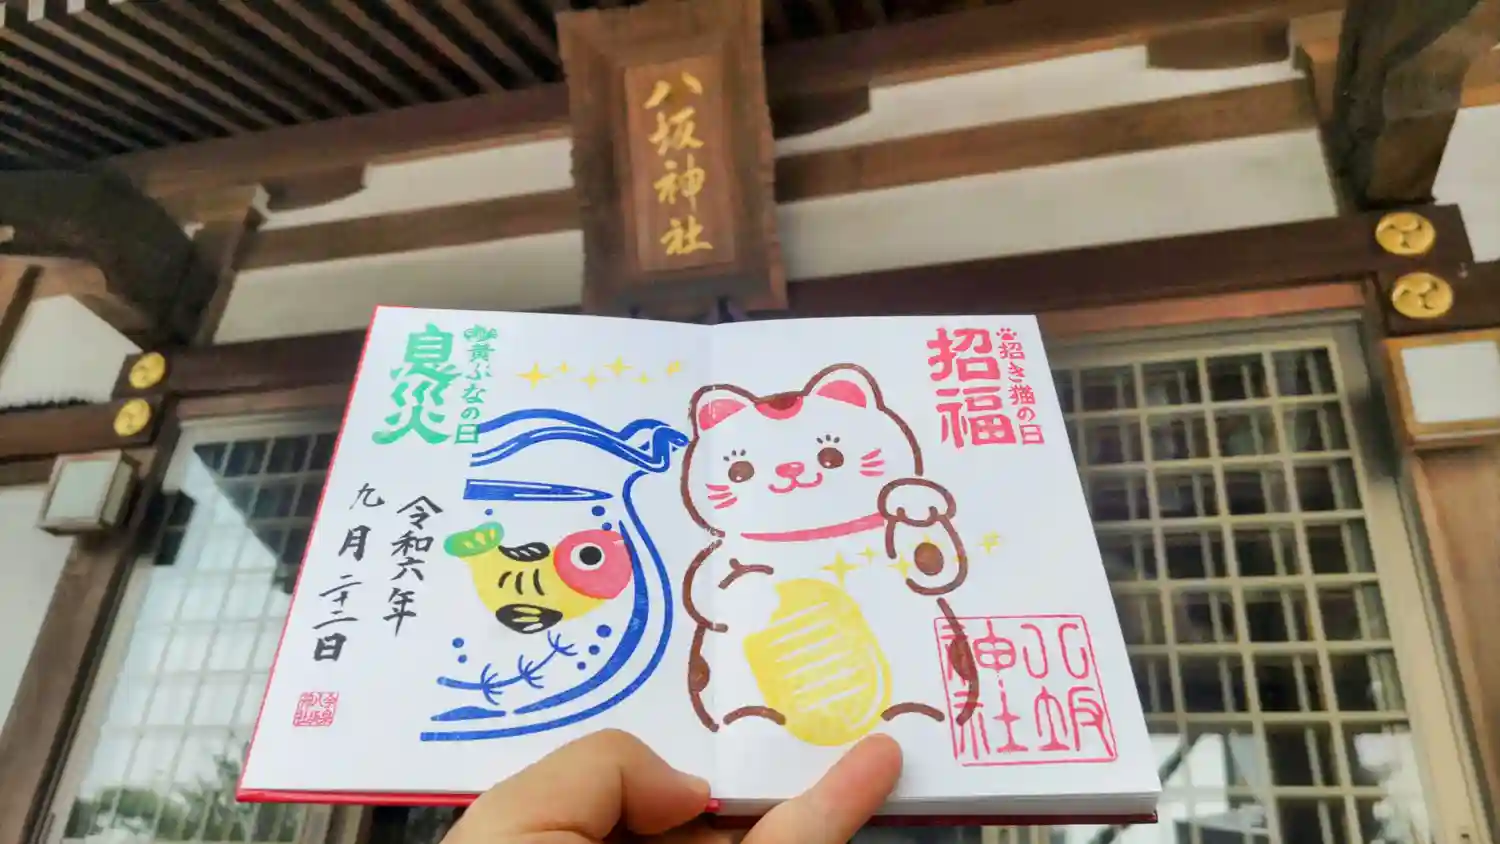 八坂神社
招き猫の日
招福
八坂
神社
黄ぶなの日
息災
令和六年
九月二十二日